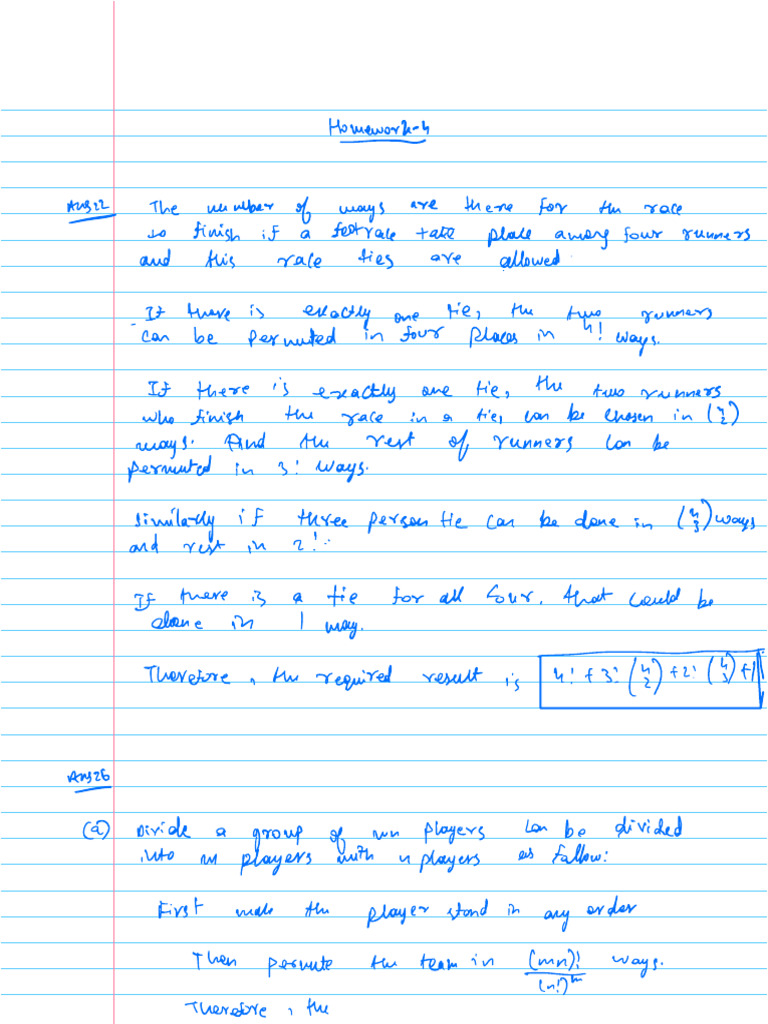 Homework-4
Ans22 The number of ways are there for the race
to finish if a footrace take place among four runners
and this race ties are allowed.
If there is exactly one tie, the two runners
can be permuted in four places in 4! ways.
If there is exactly one tie, the two runners
who finish the race in a tie, can be chosen in (4 2)
ways. And the rest of runners can be
permuted in 3! ways.
Similarly if three person tie can be done in (4 3) ways
and rest in 2!.
If there is a tie for all four, that could be
done in 1 way.
Therefore, the required result is 4! + 3! (4 2) + 2! (4 3) + 1
Ans26
(a) Divide a group of mn players can be divided
into m players with n players as follow:
First make the player stand in any order
Then permute the team in (mn)!/(n!)^m ways.
Therefore, the